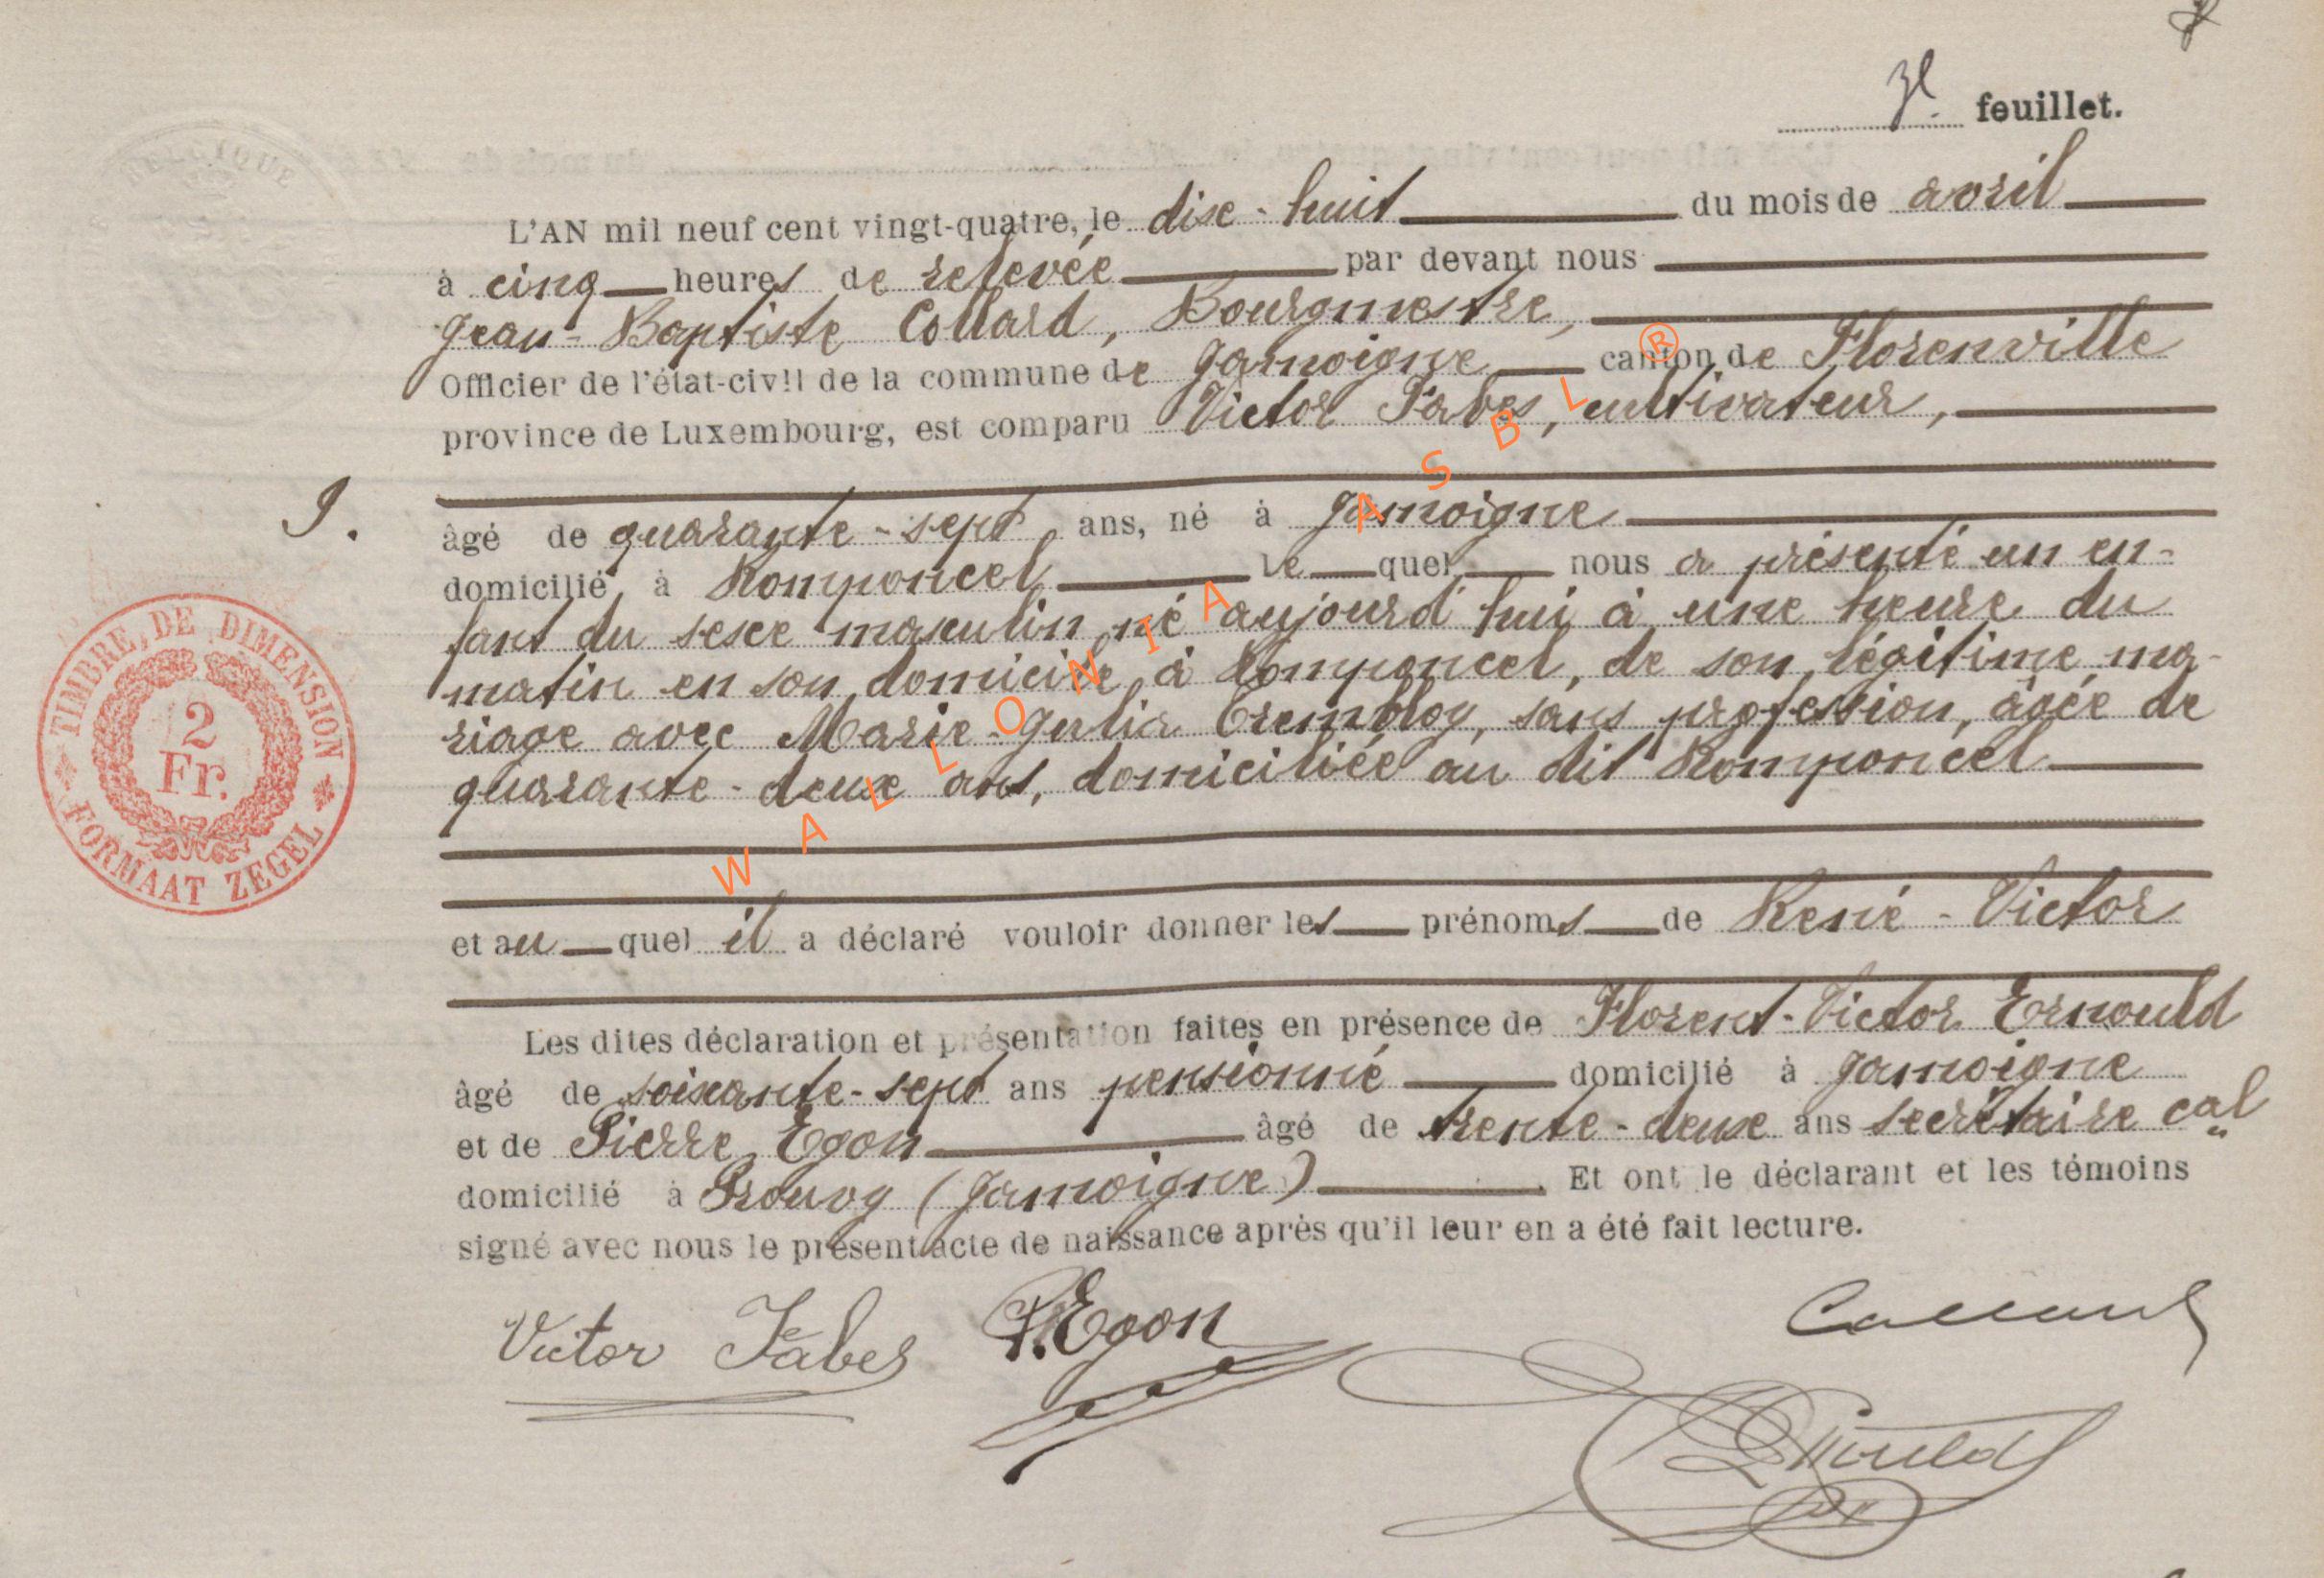 3e feuillet.
BELGIQUE
L'AN mil neuf cent vingt-quatre, le dix-huit du mois de avril
à cinq heures de relevée par devant nous
Jean-Baptiste Collard, Bourgmestre,
Officier de l'état-civil de la commune de Jamoigne canton de Florenville
province de Luxembourg, est comparu Victor Fabes, cultivateur,
9.
âgé de quarante-sept ans, né à Jamoigne
domicilié à Romponcel le quel nous a présenté un en-
fant du sexe masculin né aujourd'hui à une heure du
matin en son domicile à Romponcel, de son légitime ma-
riage avec Marie-Julia Tremblog, sans profession, âgée de
quarante-deux ans, domiciliée au dit Romponcel
et au quel il a déclaré vouloir donner les prénoms de René-Victor
Les dites déclaration et présentation faites en présence de Florent-Victor Ernould
âgé de soixante-sept ans pensionné domicilié à Jamoigne
et de Pierre Egon âgé de trente-deux ans secrétaire cal
domicilié à Prouvy (Jamoigne). Et ont le déclarant et les témoins
signé avec nous le présent acte de naissance après qu'il leur en a été fait lecture.
Victor Fabes P. Egon Collard
Ernould
TIMBRE DE DIMENSION
2
Fr.
FORMAAT ZEGEL
WALLONIA ASBL ®